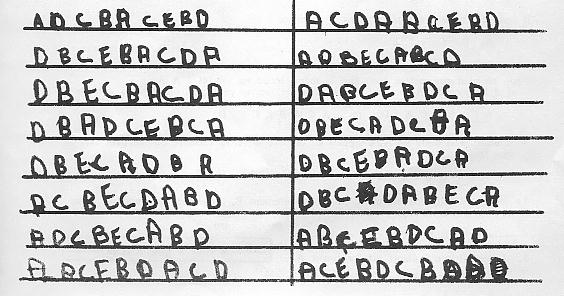 ADCBACEBD ACDABCEBD
DBCEBACDA ADBECABCD
DBECBACDA DABCEBDCA
DBADCEBCA DBECADCBA
DBECADBA DBCEBADCA
ACBECDABD DBCADABECA
ADCBECABD ABCEBDCAD
ADCEBDACD ACEBDCB